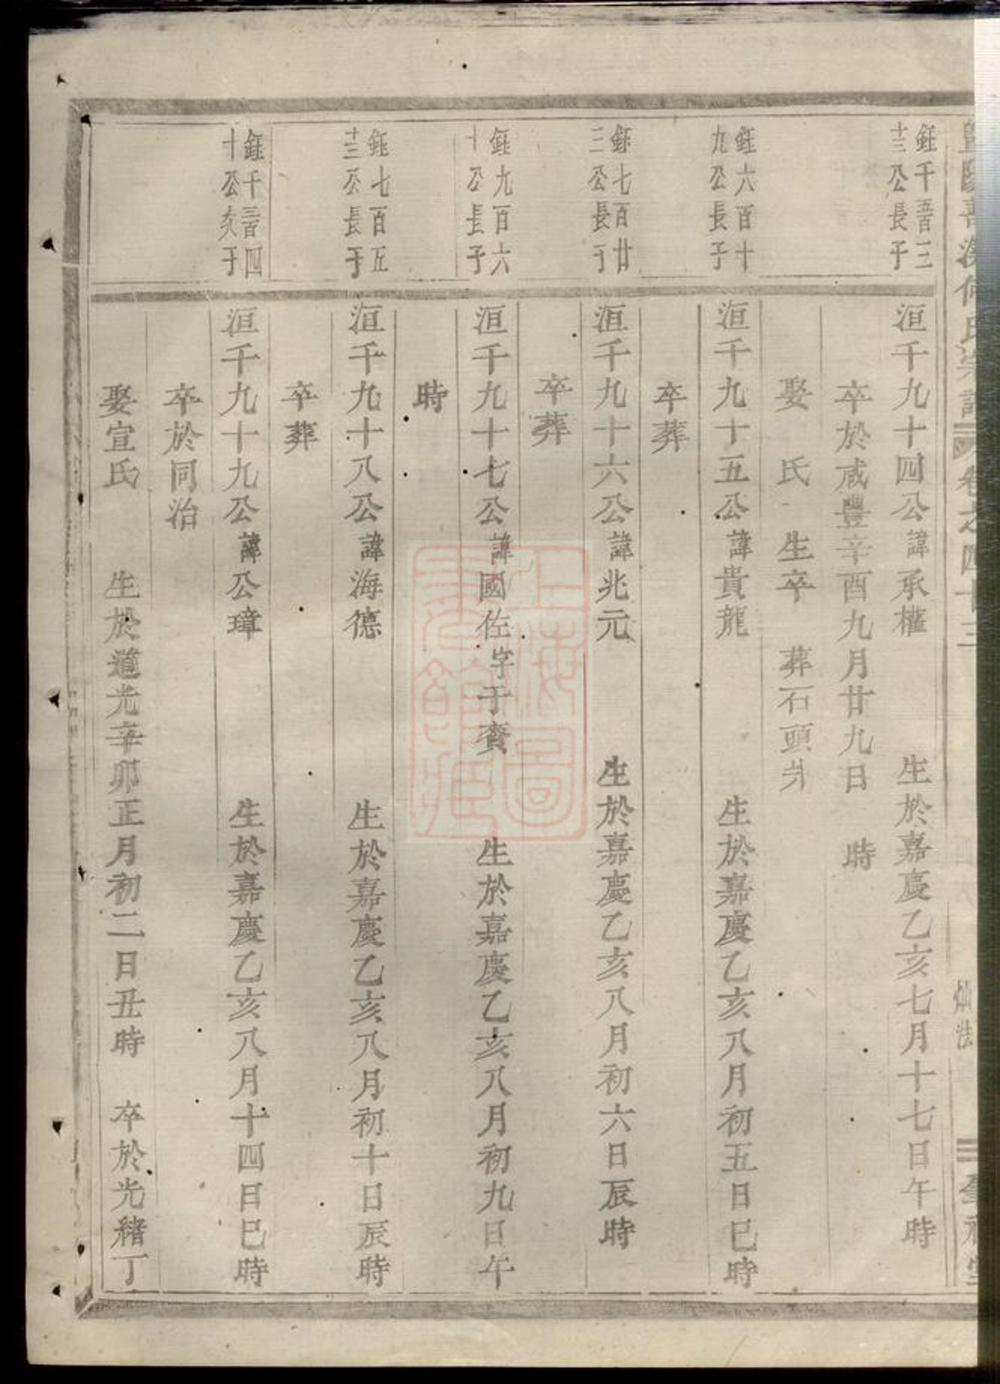 暨陽喜溪何氏宗譜 卷之四十三
鈺千三
十三公長子
洹千九十四公諱承權 生於嘉慶乙亥七月十七日午時
卒於咸豐辛酉九月廿九日 時
娶 氏 生卒 葬石頭
鈺六百十
九公長子
洹千九十五公諱貴龍 生於嘉慶乙亥八月初五日巳時
卒葬
鈺七百廿
三公長子
洹千九十六公諱兆元 生於嘉慶乙亥八月初六日辰時
卒葬
鈺九百六
十公長子
洹千九十七公諱國佐字于賓 生於嘉慶乙亥八月初九日午
時
鈺七百五
十三公長子
洹千九十八公諱海德 生於嘉慶乙亥八月初十日辰時
卒葬
鈺千三百四
十公次子
洹千九十九公諱公璋 生於嘉慶乙亥八月十四日巳時
卒於同治
娶宣氏 生於道光辛卯正月初二日丑時 卒於光緒丁
上海圖書館藏